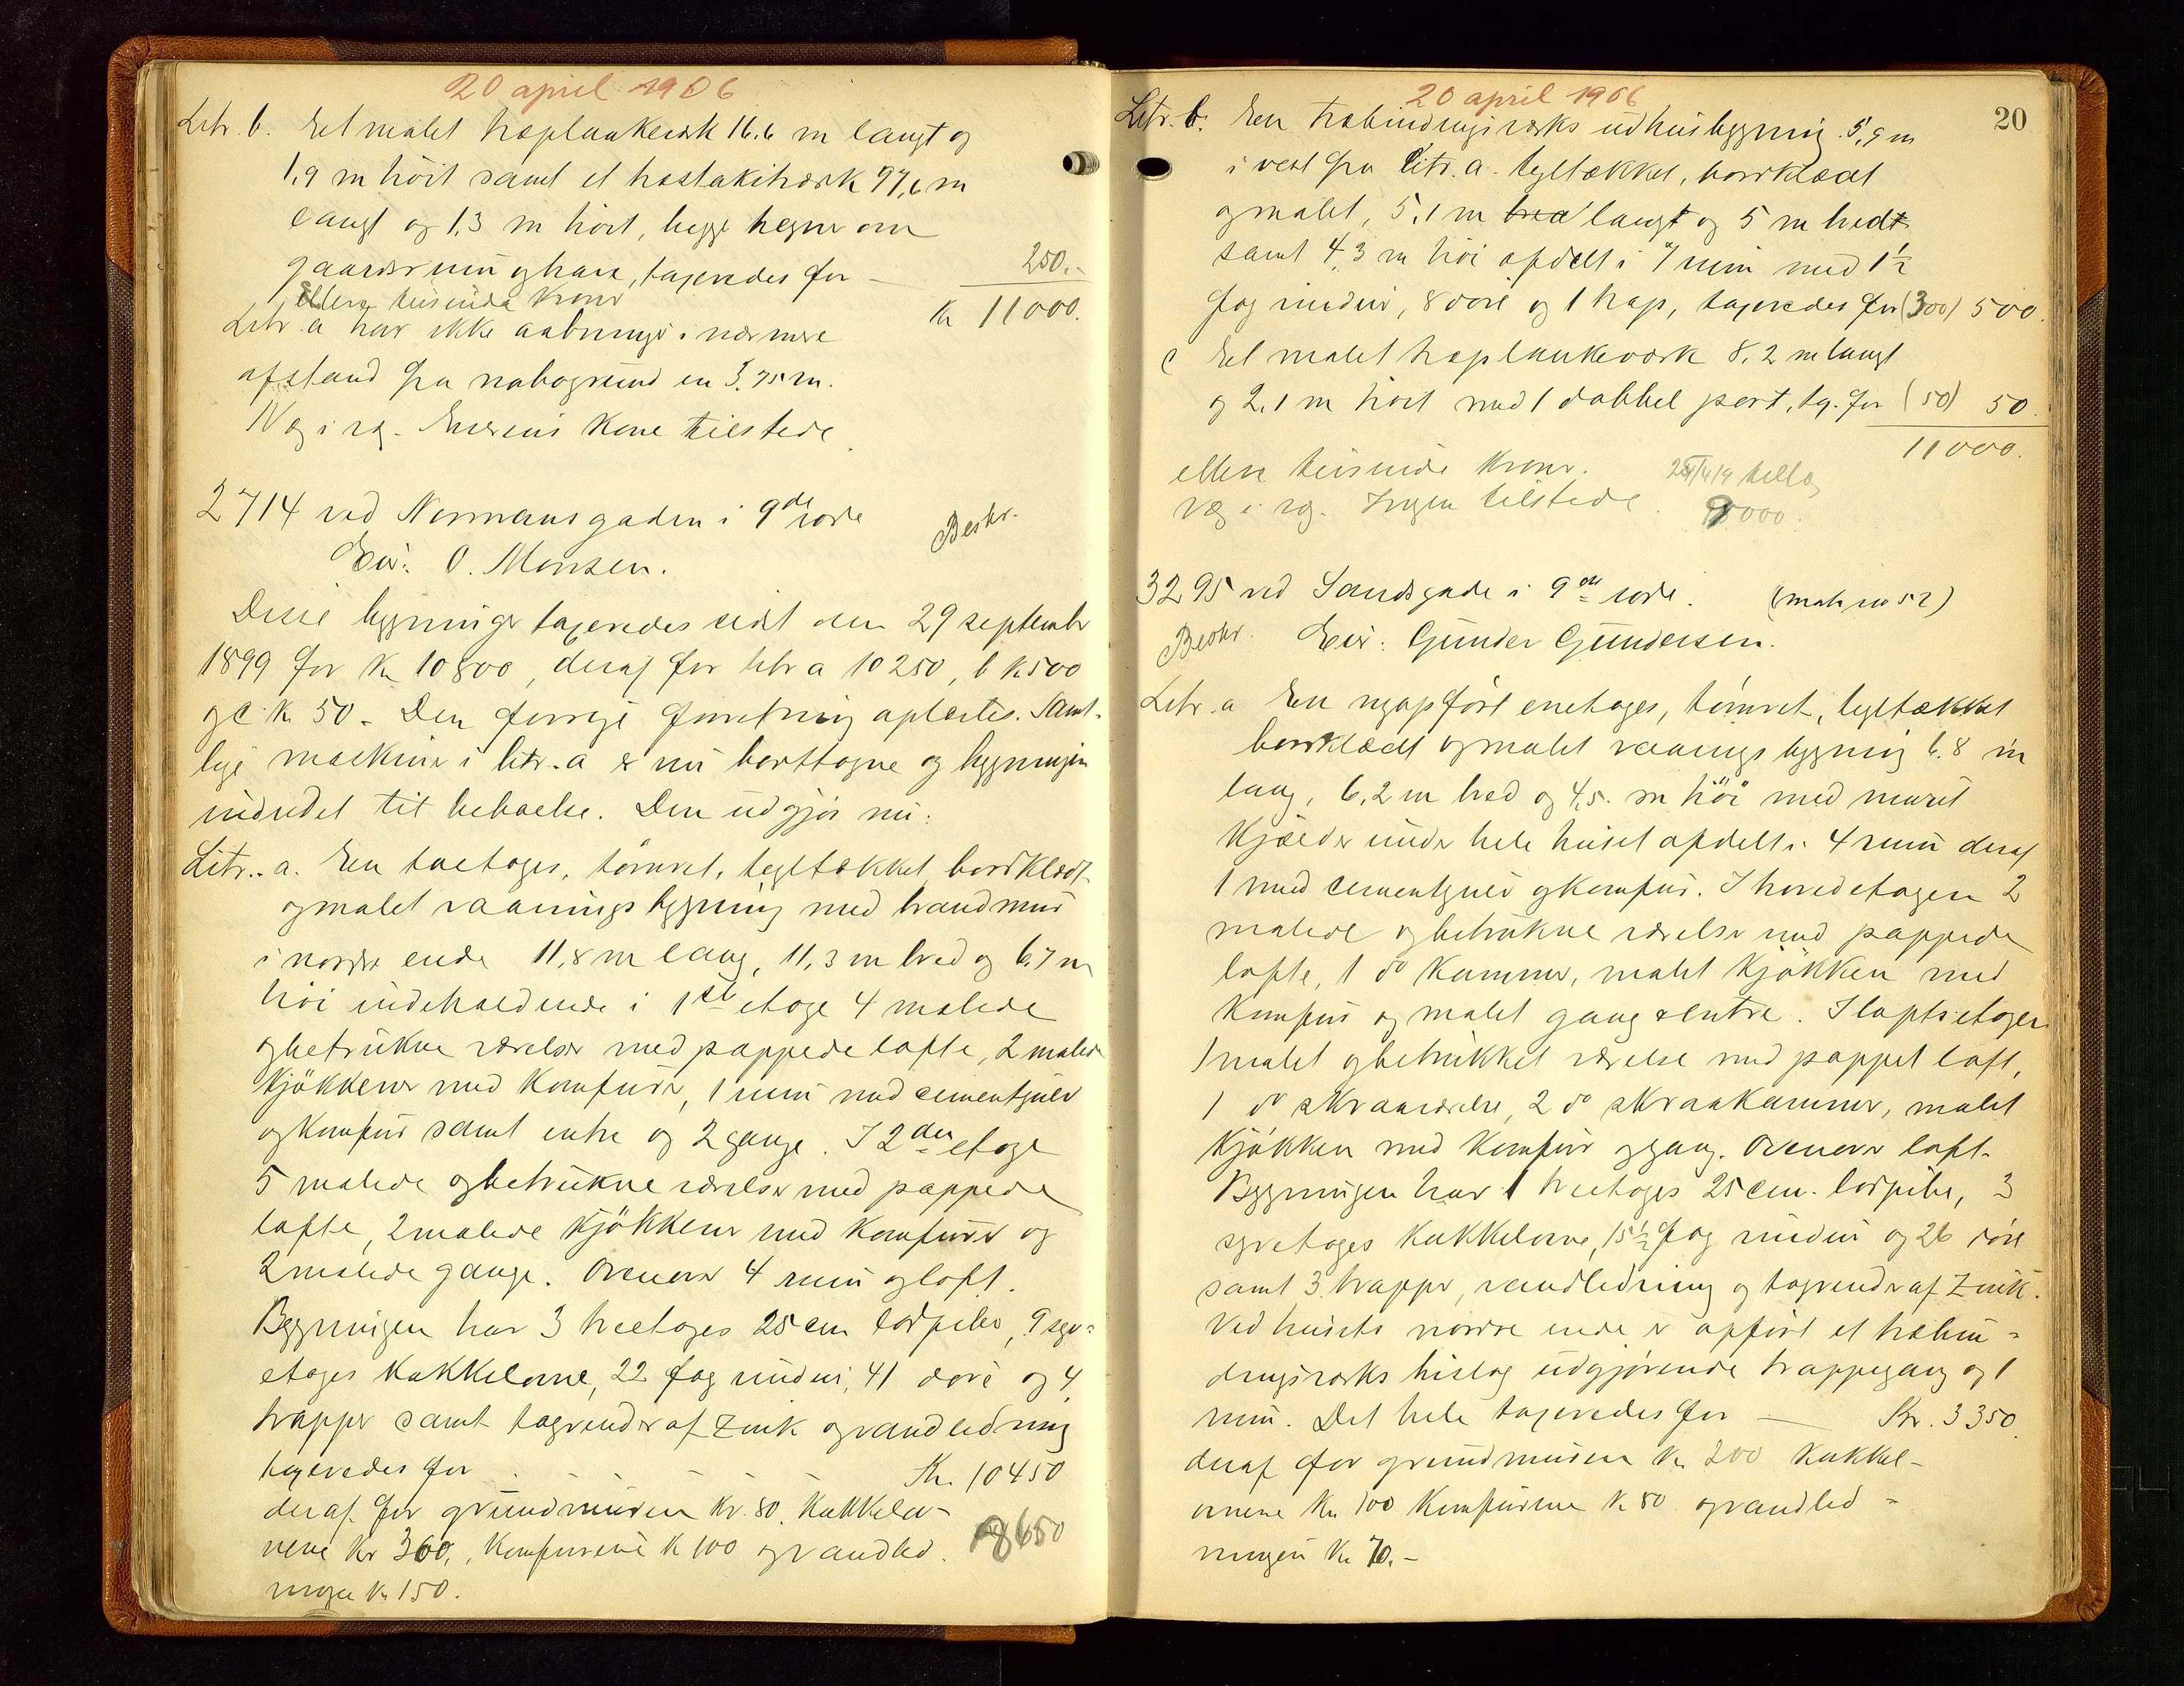 20 april 1906
Litr. b. Et malet træplankeværk 16.6 m langt og
1,9 m høit samt et træstakitværk 97,6 m
langt og 1,3 m høit, begge hegner om
gaardsrum og have, taxeredes for — 250.-
Kr 11000.
Elleve tusinde kroner
Litr. a har ikke aabninger i nærmere
afstand fra nabogrund en 3.75 m.
Væg i væg. Eierens kone tilstede
2714 ved Normansgaden i 9de rode
Beskr.
Eier: O. Monsen.
Disse bygninger taxeredes sidst den 29 september
1899 for Kr 10800, deraf for litr a 10250, b kr 500
og c Kr. 50 - Den forrige forretning oplæstes. Samt-
lige maskiner i litr. a er nu borttagne og bygningen
indredet til beboelse. Den udgjør nu:
Litr. a. En toetages, tømret, tegltækket, bordklædt
og malet vaaningsbygning med brandmur
i nordre ende 11,8 m lang, 11,3 m bred og 6.7 m
høi indeholdende i 1ste etage 4 malede
og betrukne værelser med pappede lofte, 2 malede
kjøkkener med komfurer, 1 rum med cementgulv
og komfur samt entre og 2 gange. I 2den etage
5 malede og betrukne værelser med pappede
lofte, 2 malede kjøkkener med komfurer og
2 malede gange. Ovenover 4 rum og loft.
Bygningen har 3 treetages 25 cm lodpiber, 9 syv=
etages kakkelovne, 22 fag vinduer, 41 døre og 4
trapper samt tagrender af zink og vandledning
taxeredes for Kr. 10450
deraf for grundmuren Kr. 80, kakkelov-
nene Kr 360, komfurene Kr 100 og vandled
8650
ningen Kr 150.
20 april 1906
20
Litr. b. En træbindingsværks udhusbygning 5,9 m
i vest fra litr. a. tegltækket, bordklædt
og malet, 5,1 m bred langt og 5 m bredt
samt 4,3 m høi afdelt i 7 rum med 1½
fag vinduer, 8 døre og 1 trap, taxeredes for (300) 500.
c Et malet træplankeværk 8,2 m langt
og 2,1 m høit med 1 dobbel port, tx. for (50) 50.
11000.
elleve tusinde kroner.
Væg i væg. Ingen tilstede.
3295 ved Sandsgade i 9de rode. (matr. no 52)
Beskr.
Eier: Gunder Gundersen.
Litr. a En nyopført enetages, tømret, tegltækket
bordklædt og malet vaaningsbygning 6.8 m
lang, 6,2 m bred og 4,5. m høi med muret
kjælder under hele huset afdelt i 4 rum deraf
1 med cementgulv og komfur. I hovedetagen 2
malede og betrukne værelser med pappede
lofte, 1 do kammer, malet kjøkken med
komfur og malet gang & entre. I loftsetagen
1 malet og betrukket værelse med pappet loft,
1 do skraaværelse, 2 do skraakammer, malet
kjøkken med komfur og gang. Ovenover loft.
Bygningen har 1 treetages 25 cm. lodpibe, 3
syvetages kakkelovne, 15½ fag vinduer og 26 døre
samt 3 trapper, vandledning og tagrender af zink.
Ved husets nordre ende er opført et træbin=
dingsværks bislag udgjørende trappegang og 1
rum. Det hele taxeredes for — Kr. 3350.
deraf for grundmuren Kr 200 kakkel-
ovnene Kr 100 komfurene Kr 80 og vandled=
ningen Kr 70.-